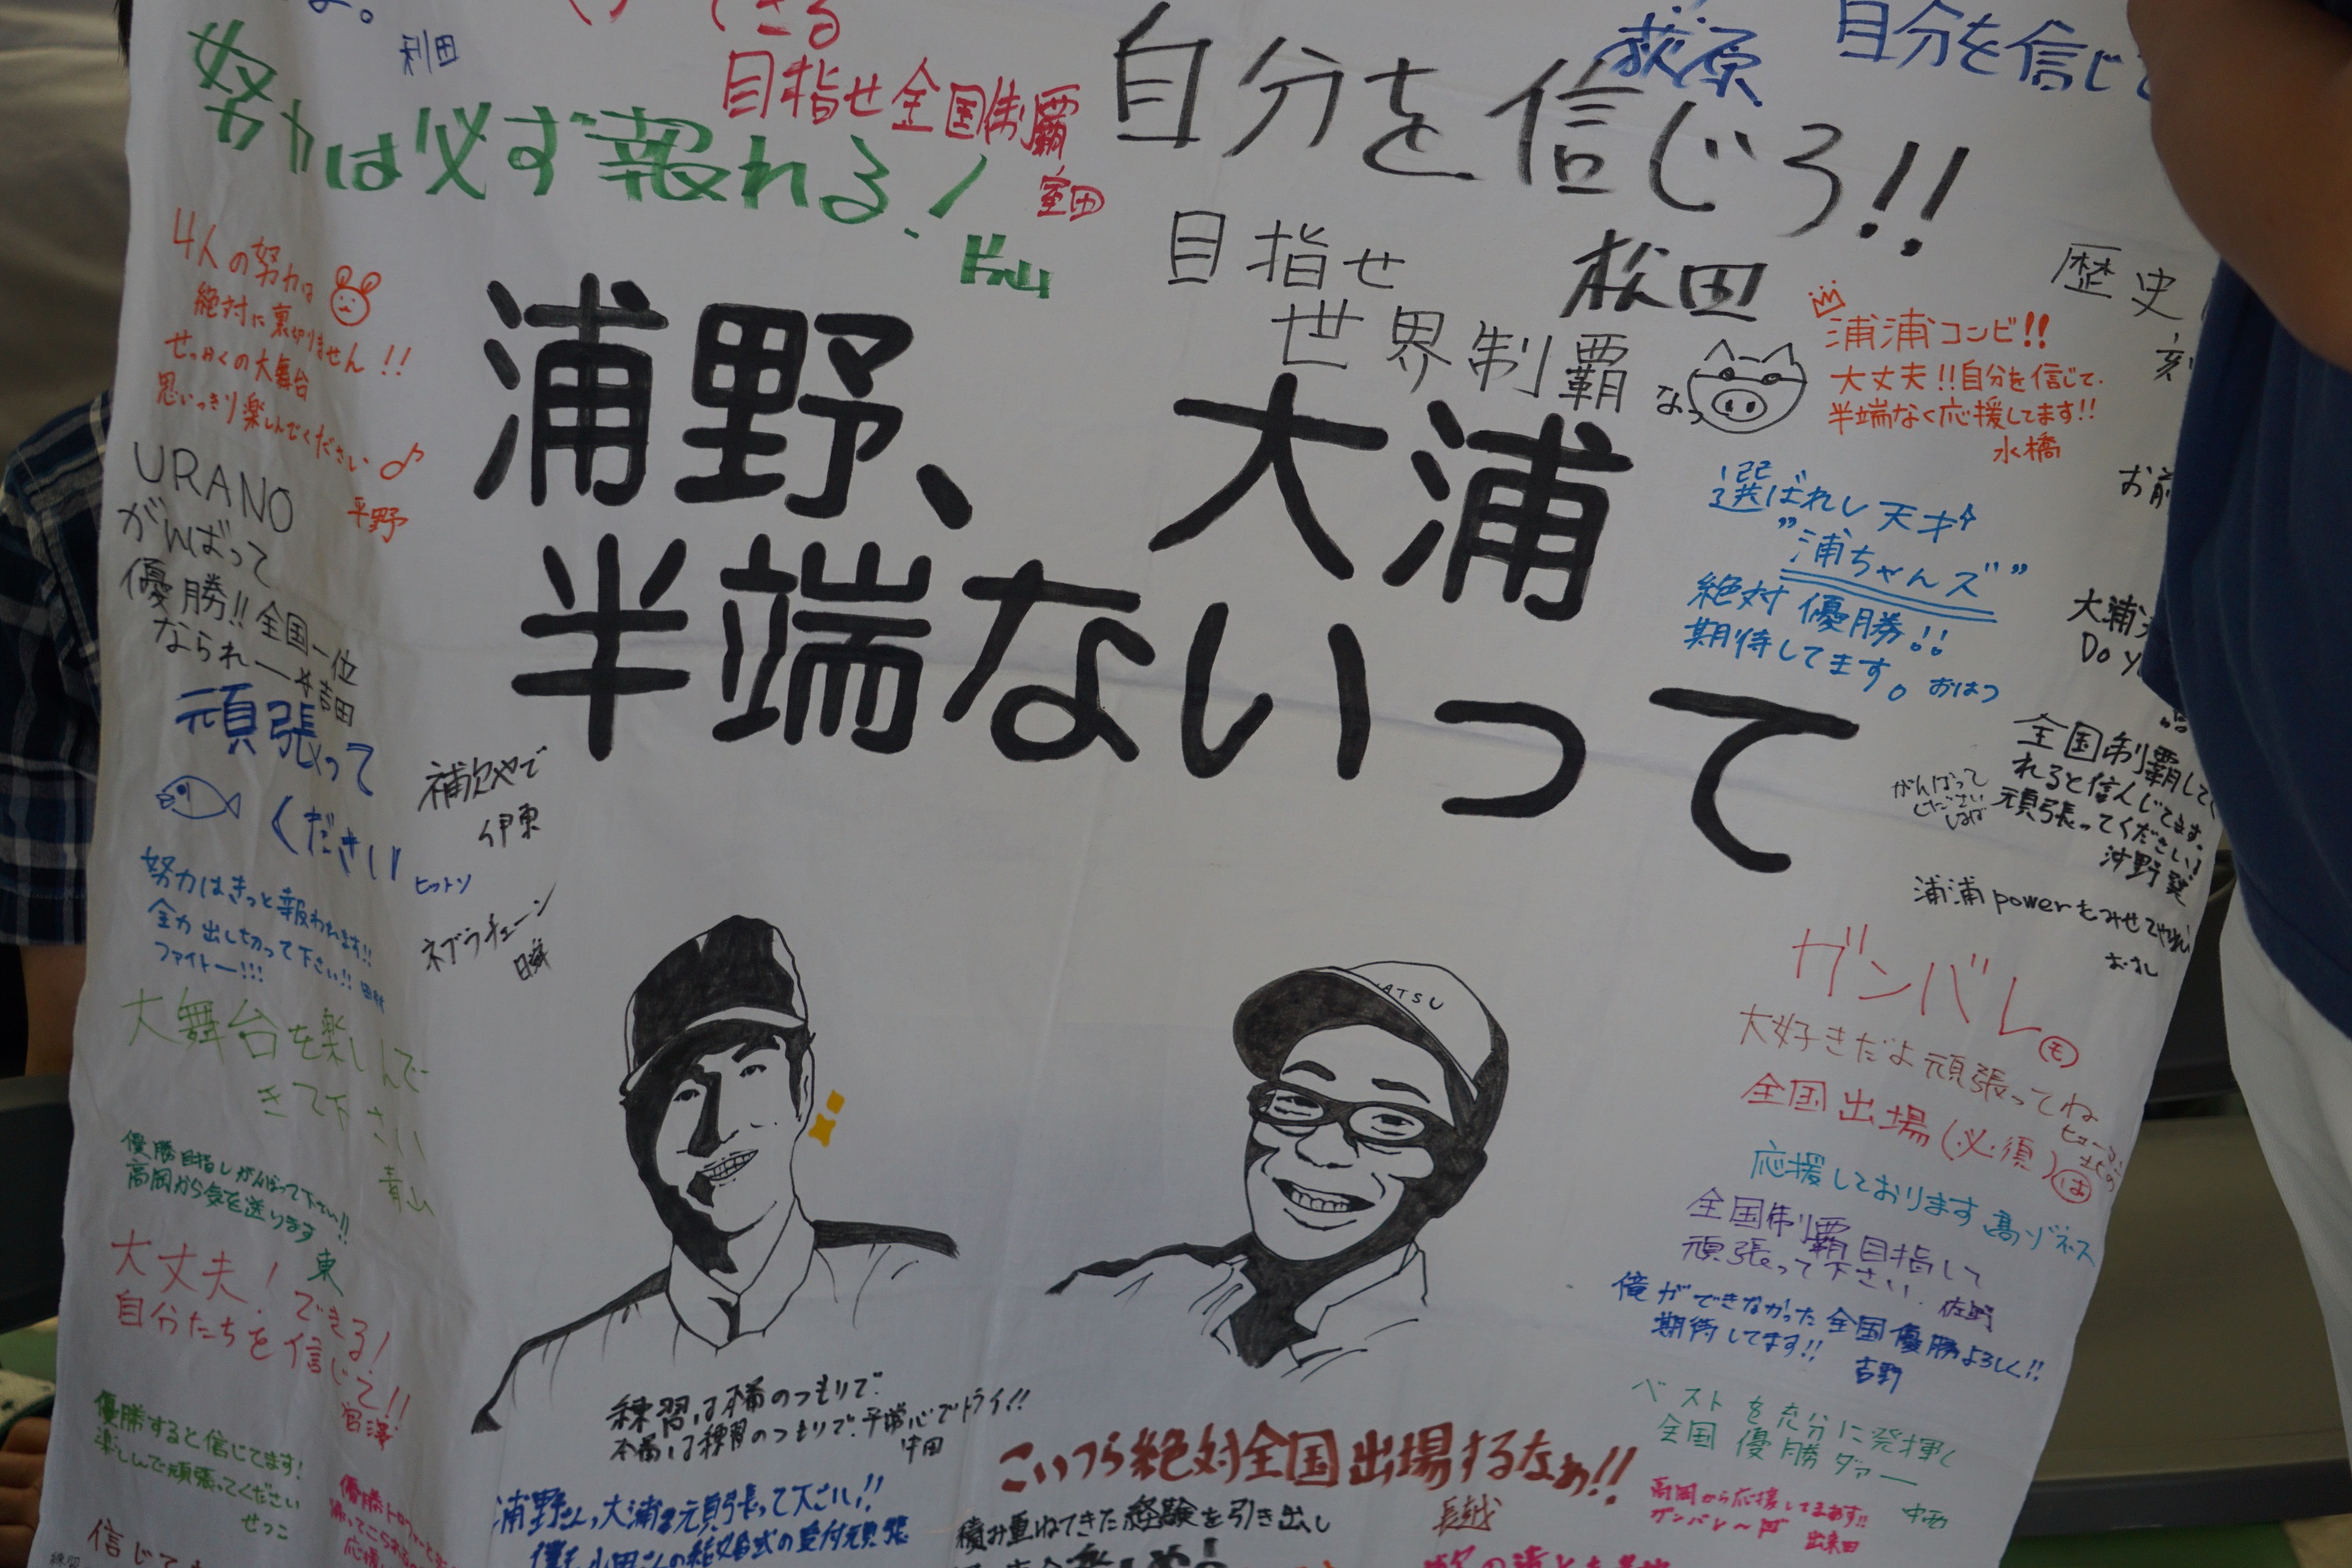 利田
できる
目指せ全国制覇
室田
努力は必ず報れる!
自分を信じろ!!
松田
荻原
自分を信じて
目指せ
世界制覇
なっ
歴史
刻
4人の努力は
絶対に裏切りません!!
せっかくの大舞台
思いっきり楽しんでください♪
平野
浦野、大浦
半端ないって
浦浦コンビ!!
大丈夫!!自分を信じて.
半端なく応援してます!!
水橋
URANO
がんばって
優勝!!全国一位
なられー
吉田
選ばれし天才
"浦ちゃんズ"
絶対優勝!!
期待してます。おはつ
お前
大浦
Do y
頑張って
ください
ヒットン
補欠やで
伊東
ネブラチェーン
全国制覇して
れると信んじてます。
頑張ってください!
沖野
がんばって
ください
浦浦powerをみせてやれ
努力はきっと報われます!!
全力出し切って下さい!!田村
ファイトー!!!
大舞台を楽しんで
きて下さい
青山
ガンバレ
大好きだよ頑張ってね
全国出場(必須)は
応援しております高ゾネス
ATSU
優勝目指しがんばって下さい!!
高岡から気を送ります
東
全国制覇目指して
頑張って下さい.佐野
大丈夫!できる!
自分たちを信じて!!
宮澤
俺ができなかった全国優勝よろしく!!
期待してます!!
吉野
優勝すると信じてます!
楽しんで頑張ってください
せっこ
練習は本番のつもりで.
本番は練習のつもりで.平常心でトライ!!
中田
こいつら絶対全国出場するなぁ!!
ベストを充分に発揮し
全国優勝ダァー
中西
高岡から応援してまあす!!
ガンバレ〜
出来田
浦野さんっ大浦さん頑張って下さい!!
僕も小田さんの結婚式の受付頑張
積み重ねてきた経験を引き出し
長越
優勝トロフィーと
信じて